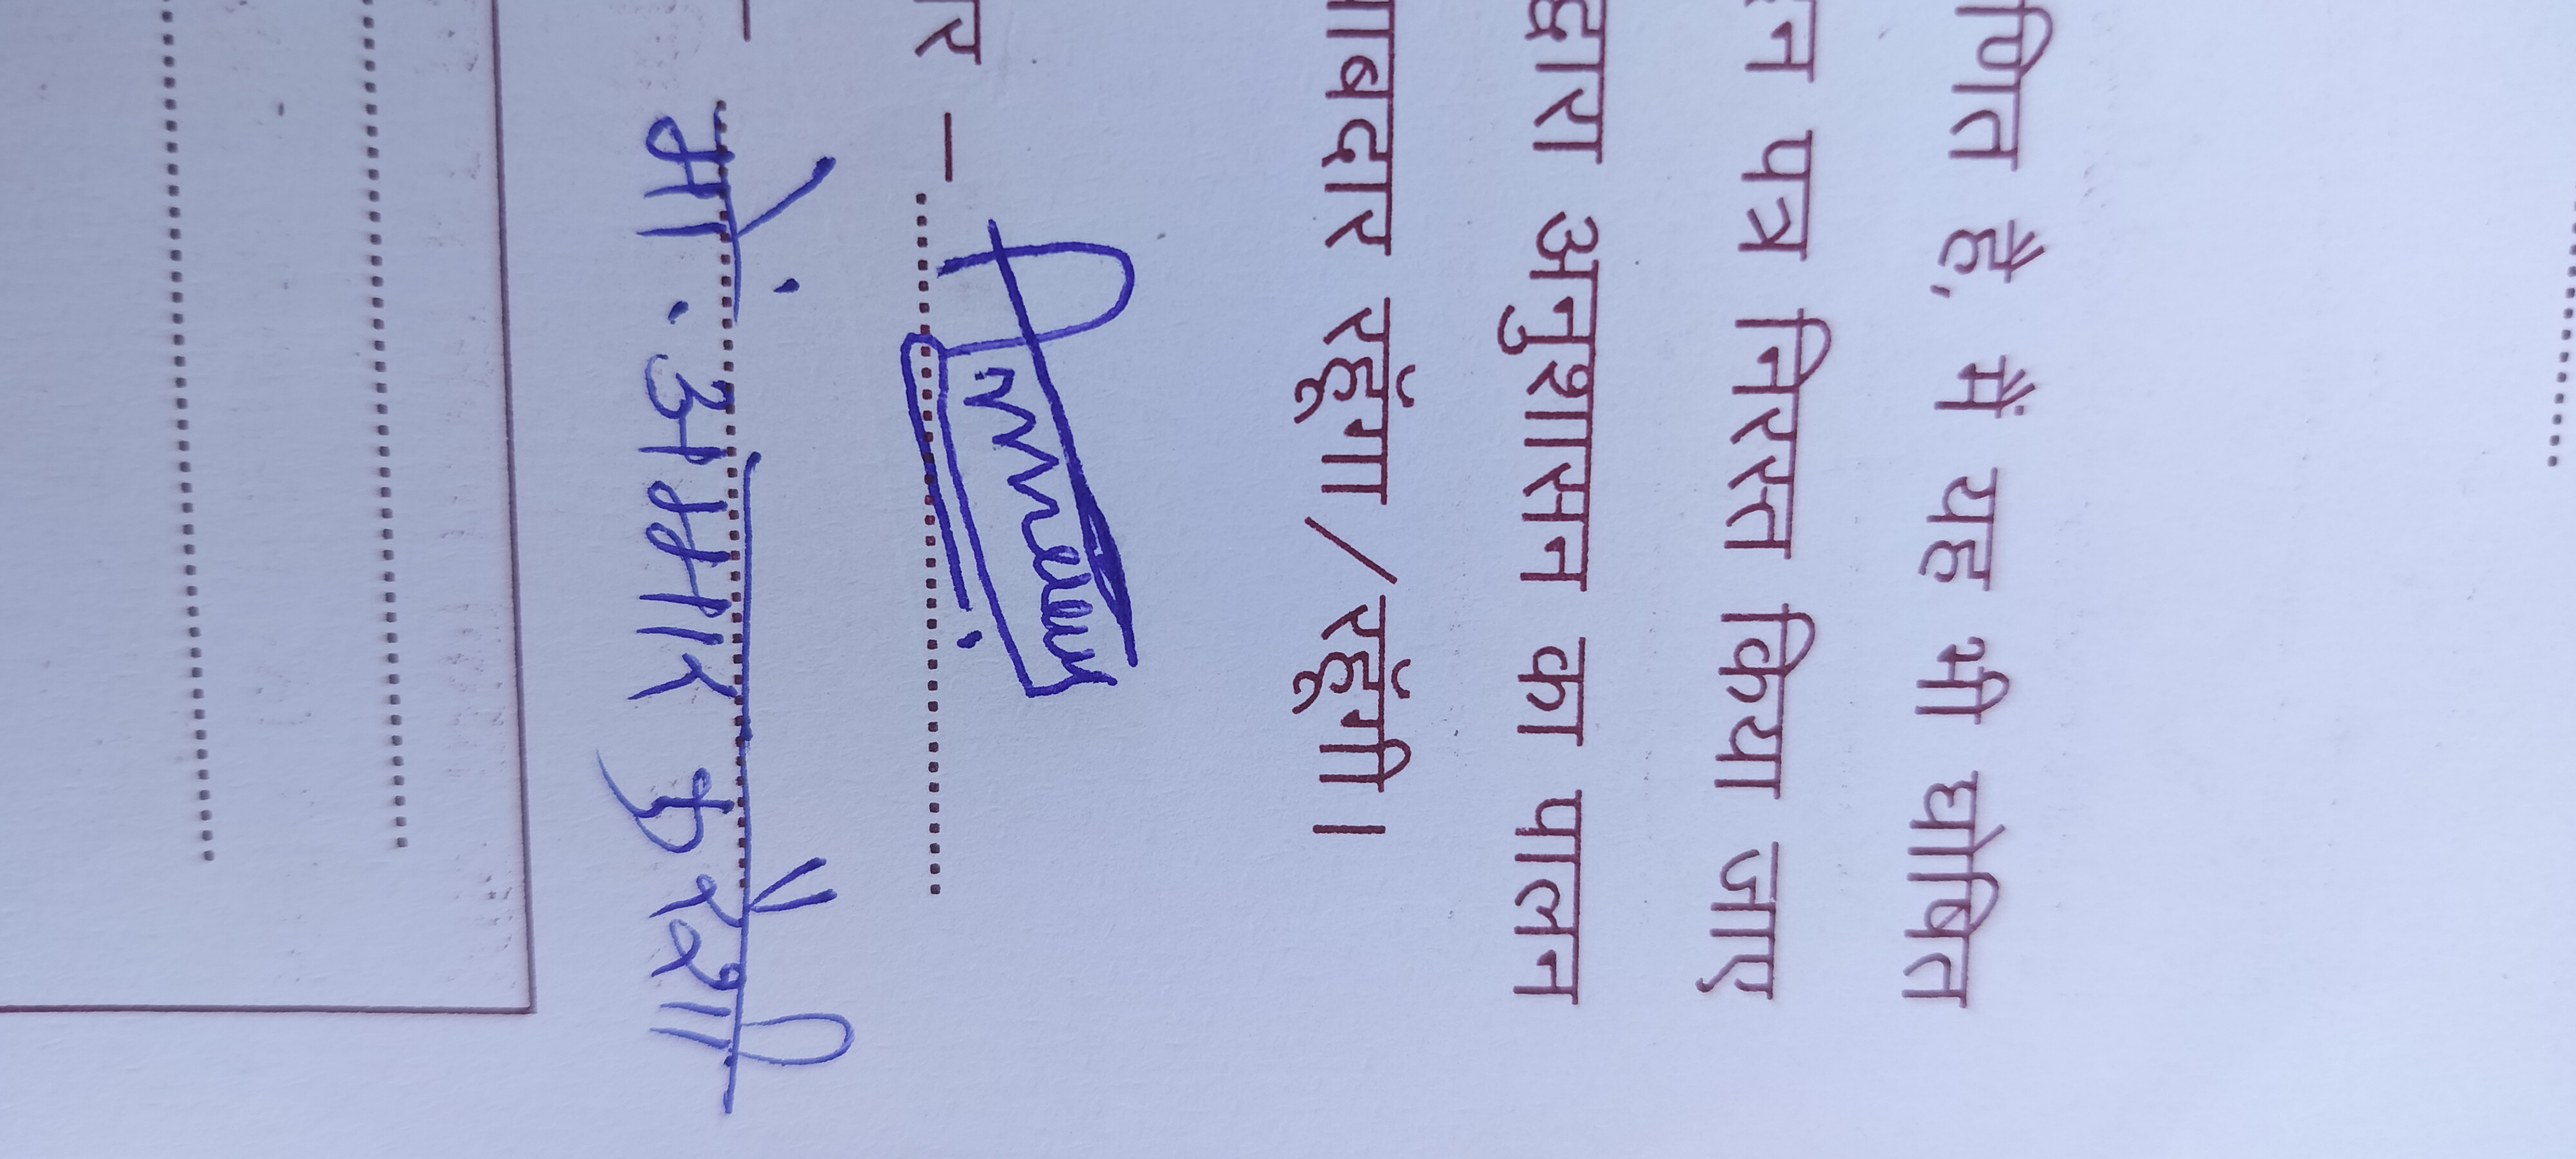 र्णित है, मैं यह भी घोषित
दन पत्र निरस्त किया जाए
द्वारा अनुशासन का पालन
वाबदार रहूंगा/रहूंगी।
र –
– मो. अम्मार कुरैशी